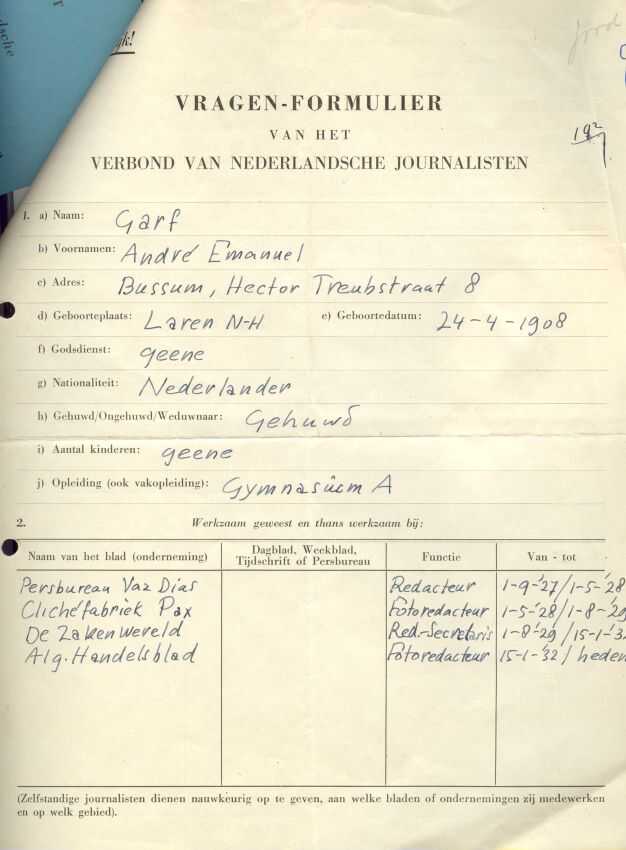 dsche
jk!
VRAGEN-FORMULIER
VAN HET
VERBOND VAN NEDERLANDSCHE JOURNALISTEN
1. a) Naam: Garf
b) Voornamen: André Emanuel
c) Adres: Bussum, Hector Treubstraat 8
d) Geboorteplaats: Laren N-H e) Geboortedatum: 24-4-1908
f) Godsdienst: geene
g) Nationaliteit: Nederlander
h) Gehuwd/Ongehuwd/Weduwnaar: Gehuwd
i) Aantal kinderen: geene
j) Opleiding (ook vakopleiding): Gymnasium A
2. Werkzaam geweest en thans werkzaam bij:
Naam van het blad (onderneming) Dagblad, Weekblad, Tijdschrift of Persbureau Functie Van - tot
Persbureau Vaz Dias Redacteur 1-9-'27/1-5-'28
Clichéfabriek Pax Fotoredacteur 1-5-'28/1-8-'29
De Zakenwereld Red.-Secretaris 1-8-'29/15-1-'32
Alg. Handelsblad Fotoredacteur 15-1-'32/heden
(Zelfstandige journalisten dienen nauwkeurig op te geven, aan welke bladen of ondernemingen zij medewerken
en op welk gebied).